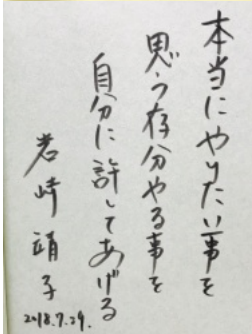 本当にやりたい事を
思う存分やる事を
自分に許してあげる
岩崎靖子
2018.7.29.